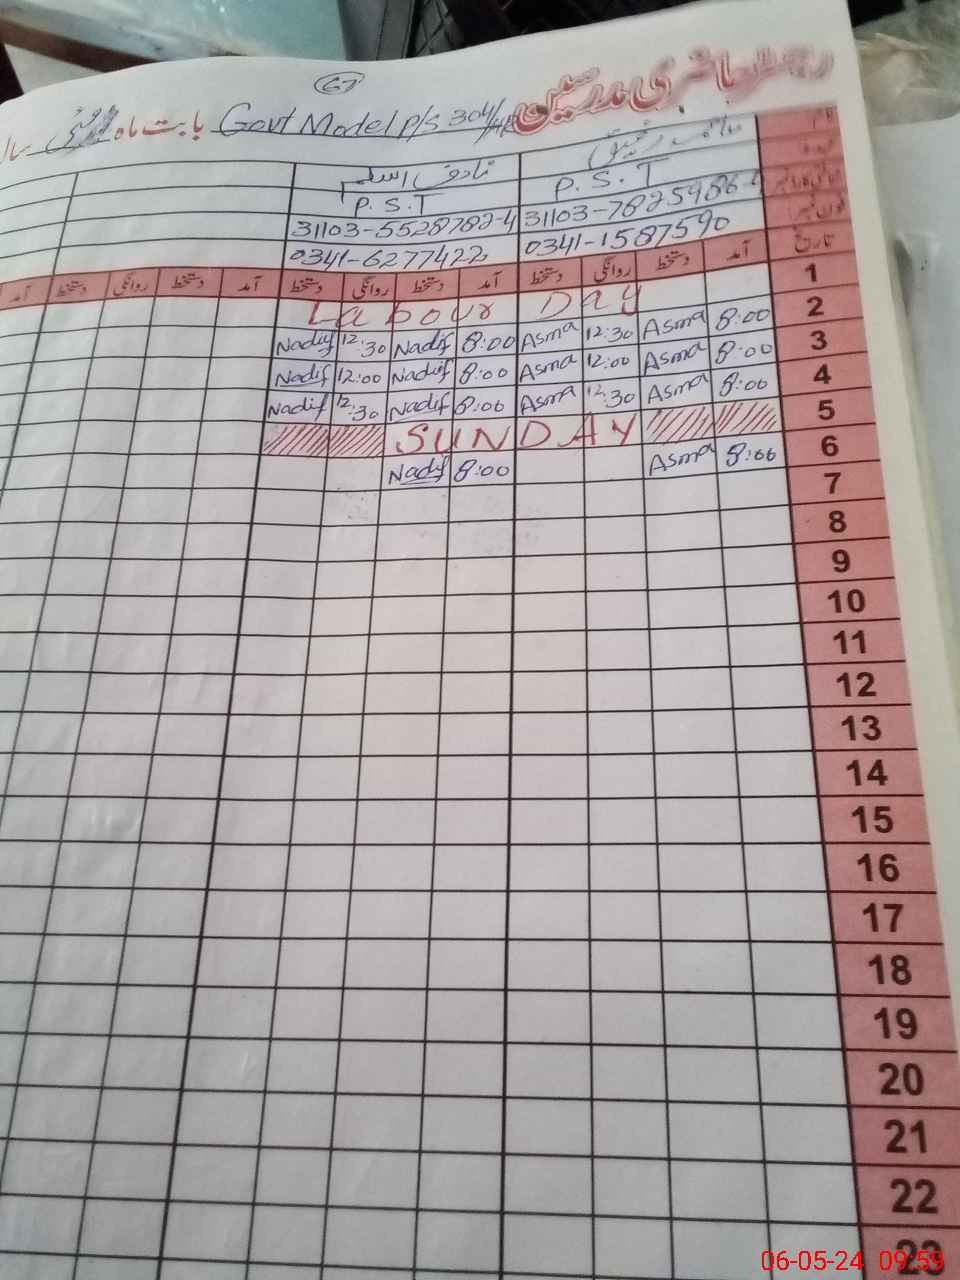 67
رجسٹر حاضری مدرسین Govt Model P/S 304/HR بابت ماہ مئی سال
نام
نادف اسلم
P.S.T P.S.T
31103-7825986-4 31103-5528782-4
فون نمبر 0341-1587590 0341-6277422
تاریخ آمد دستخط روانگی دستخط آمد دستخط روانگی دستخط آمد دستخط روانگی دستخط آمد
1 Labour Day
2 8:00 Asma 12:30 Asma 8:00 Nadif 12:30 Nadif
3 8:00 Asma 12:00 Asma 8:00 Nadif 12:00 Nadif
4 8:00 Asma 12:30 Asma 8:00 Nadif 12:30 Nadif
5 SUNDAY
6 8:00 Asma 8:00 Nadif
7
8
9
10
11
12
13
14
15
16
17
18
19
20
21
22
23
06-05-24 09:59